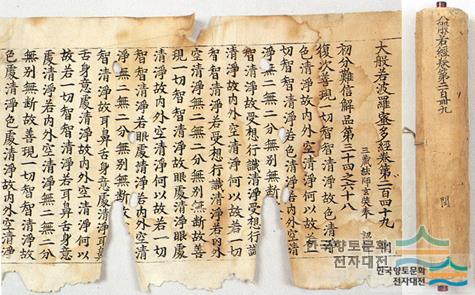 大般若經卷第二百卌九
大般若波羅蜜多經卷第二百四十九
初分難信解品第三十四之六十八
三藏法師玄奘奉 詔
復次善現一切智智清淨故色清淨
色清淨故內外空清淨何以故若一
切智智清淨若色清淨若內外空清
淨無二無二分無別無斷故一切智智
清淨故受想行識清淨受想行識
清淨故內外空清淨何以故若一切
智智清淨若受想行識清淨若內外
空清淨無二無二分無別無斷故善
現一切智智清淨故眼處清淨眼處
清淨故內外空清淨何以故若一切
智智清淨若眼處清淨若內外空清
淨無二無二分無別無斷故一切智
智清淨故耳鼻舌身意處清淨耳鼻
舌身意處清淨故內外空清淨何以
故若一切智智清淨若耳鼻舌身意
處清淨若內外空清淨無二無二分
無別無斷故善現一切智智清淨故
色處清淨色處清淨故內外空清淨
한국향토문화
전자대전
한국향토문화
전자대전